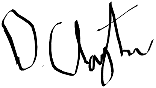 D. Clayton